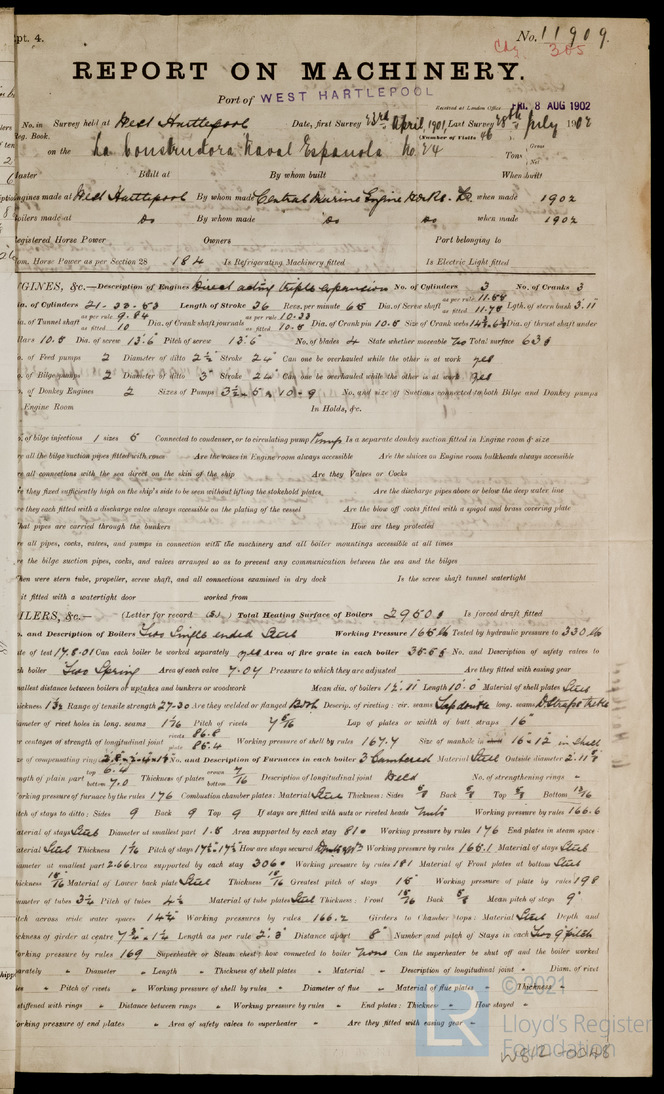 pt. 4.
No. 11909.
REPORT ON MACHINERY.
Port of WEST HARTLEPOOL
Received at London Office FRI. 8 AUG 1902
No. in Survey held at West Hartlepool Date, first Survey 23rd April 1901 Last Survey 28th July 1902
Reg. Book. (Number of Visits 46
on the La Constructora Naval Espanola No 24 Tons Gross Net
Master Built at By whom built When built
Engines made at West Hartlepool By whom made Central Marine Engine Works. Co. when made 1902
Boilers made at do By whom made do do when made 1902
Registered Horse Power Owners Port belonging to
Nom. Horse Power as per Section 28 184 Is Refrigerating Machinery fitted Is Electric Light fitted
GINES, &c.—Description of Engines Direct acting triple expansion No. of Cylinders 3 No. of Cranks 3
ia. of Cylinders 21-33-53 Length of Stroke 36 Revs. per minute 65 Dia. of Screw shaft as per rule 11.58 as fitted 11.78 Lgth. of stern bush 3'11"
ia. of Tunnel shaft as per rule 9.84 as fitted 10 Dia. of Crank shaft journals as per rule 10.33 as fitted 10.8 Dia. of Crank pin 10.8 Size of Crank webs Dia. of thrust shaft under
llars 10.8 Dia. of screw 13'.6" Pitch of screw 13'.6" No. of blades 4 State whether moveable No Total surface 63
o. of Feed pumps 2 Diameter of ditto 2½" Stroke 24" Can one be overhauled while the other is at work yes
o. of Bilge pumps 2 Diameter of ditto 3" Stroke 24" Can one be overhauled while the other is at work yes
o. of Donkey Engines 2 Sizes of Pumps No. and size of Suctions connected to both Bilge and Donkey pumps
Engine Room In Holds, &c.
o. of bilge injections 1 sizes 5 Connected to condenser, or to circulating pump Pump Is a separate donkey suction fitted in Engine room & size
re all the bilge suction pipes fitted with roses Are the roses in Engine room always accessible Are the sluices on Engine room bulkheads always accessible
re all connections with the sea direct on the skin of the ship Are they Valves or Cocks
re they fixed sufficiently high on the ship's side to be seen without lifting the stokehold plates Are the discharge pipes above or below the deep water line
re they each fitted with a discharge valve always accessible on the plating of the vessel Are the blow off cocks fitted with a spigot and brass covering plate
hat pipes are carried through the bunkers How are they protected
re all pipes, cocks, valves, and pumps in connection with the machinery and all boiler mountings accessible at all times
re the bilge suction pipes, cocks, and valves arranged so as to prevent any communication between the sea and the bilges
hen were stern tube, propeller, screw shaft, and all connections examined in dry dock Is the screw shaft tunnel watertight
it fitted with a watertight door worked from
ILERS, &c.— (Letter for record (S) ) Total Heating Surface of Boilers 2950 Is forced draft fitted
o. and Description of Boilers Two Single ended Steel Working Pressure 165 lb Tested by hydraulic pressure to 330 lb
ate of test 17.8.01 Can each boiler be worked separately yes Area of fire grate in each boiler No. and Description of safety valves to
ch boiler Two Spring Area of each valve 7.04 Pressure to which they are adjusted Are they fitted with easing gear
mallest distance between boilers or uptakes and bunkers or woodwork Mean dia. of boilers 12'.11" Length 10'.0" Material of shell plates Steel
hickness Range of tensile strength 27-30 Are they welded or flanged Both Descrip. of riveting: cir. seams Lap double long. seams
iameter of rivet holes in long. seams 1 1/16 Pitch of rivets Lap of plates or width of butt straps 16"
er centages of strength of longitudinal joint rivets 86.8 plate 85.4 Working pressure of shell by rules 167.4 Size of manhole in 16"×12" in shell
ze of compensating ring No. and Description of Furnaces in each boiler 3 Cambered Material Steel Outside diameter
ength of plain part top 6.4 bottom 7.0 Thickness of plates crown bottom 7/16 Description of longitudinal joint Weld No. of strengthening rings -
orking pressure of furnace by the rules 176 Combustion chamber plates: Material Steel Thickness: Sides 5/8 Back 5/8 Top 5/8 Bottom 13/16
itch of stays to ditto: Sides 9 Back 9 Top 9 If stays are fitted with nuts or riveted heads Nuts Working pressure by rules 166.6
aterial of stays Steel Diameter at smallest part 1.8 Area supported by each stay 81 Working pressure by rules 176 End plates in steam space:
aterial Steel Thickness 1 1/16 Pitch of stays How are stays secured Working pressure by rules 168.1 Material of stays Steel
iameter at smallest part 2.66 Area supported by each stay 306 Working pressure by rules 181 Material of Front plates at bottom Steel
hickness Material of Lower back plate Steel Thickness Greatest pitch of stays 15" Working pressure of plate by rules 198
iameter of tubes 3¼ Pitch of tubes 4½ Material of tube plates Steel Thickness: Front Back 5/8 Mean pitch of stays 9"
itch across wide water spaces 14¼ Working pressures by rules 166.2 Girders to Chamber tops: Material Steel Depth and
ickness of girder at centre Length as per rule 2'.3" Distance apart 8" Number and pitch of Stays in each Two 9" pitch
orking pressure by rules 169 Superheater or Steam chest; how connected to boiler None Can the superheater be shut off and the boiler worked
parately Diameter Length Thickness of shell plates Material Description of longitudinal joint Diam. of rivet
les Pitch of rivets Working pressure of shell by rules Diameter of flue Material of flue plates Thickness
stiffened with rings Distance between rings Working pressure by rules End plates: Thickness How stayed
orking pressure of end plates Area of safety valves to superheater Are they fitted with easing gear
LR © 2021
Lloyd's Register
Foundation
W812-0048